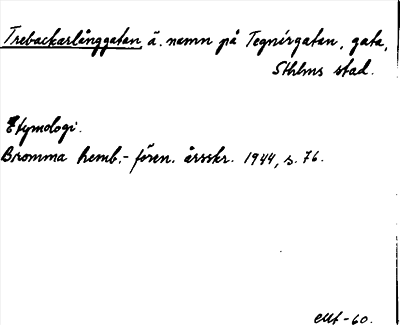 Trebackarlånggatan ä. namn på Tegnérgatan, gata,
Sthlms stad.
Etymologi.
Bromma hemb.- fören. årsskr. 1944, s. 76.
-60.